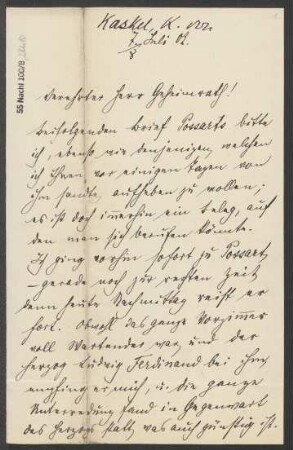 55 Nachl 100/B
Kaskel, K. von
7. Juli 02.
8
Verehrter Herr Geheimrath!
Beifolgenden Brief Possarts bitte
ich, ebenso wie denjenigen, welchen
ich Ihnen vor einigen Tagen von
ihm sandte, aufheben zu wollen;
es ist doch immerhin ein Beleg, auf
den man sich berufen könnte.
Ich ging vorhin sofort zu Possart,
– gerade noch zur rechten Zeit
denn heute Nachmittag reist er
fort. Obwohl das ganze Vorzimmer
voll Wartender war und der
Herzog Ludwig Ferdinand bei ihm,
empfing er mich, u. die ganze
Unterredung fand in Gegenwart
des Herzogs statt, was auch günstig ist.